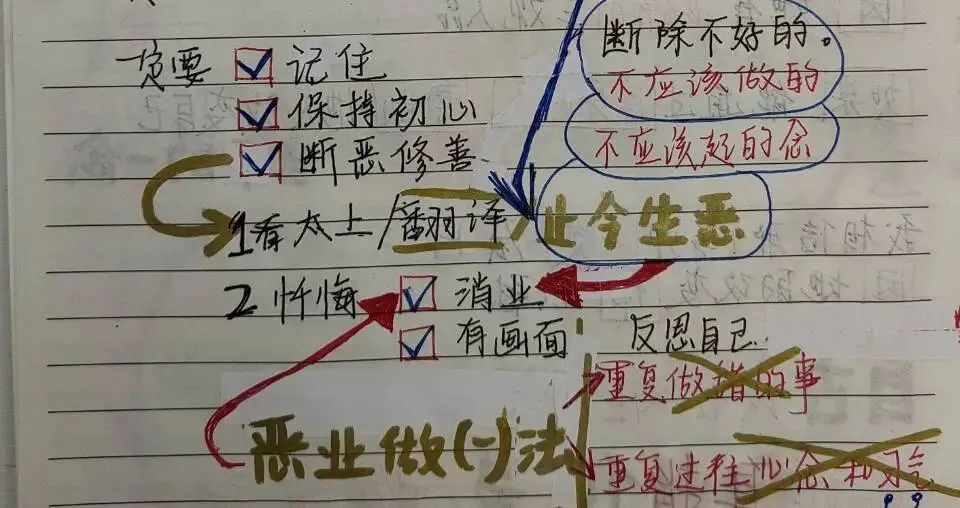 断除不好的。
一定要 ☑ 记住
不应该做的
☑ 保持初心
不应该起的念
☑ 断恶修善
1看太上/翻译/止今生恶
2忏悔 ☑ 消业
☑ 有画面 反思自己
重复做错的事
恶业做(一)法
重复过往心念和习气